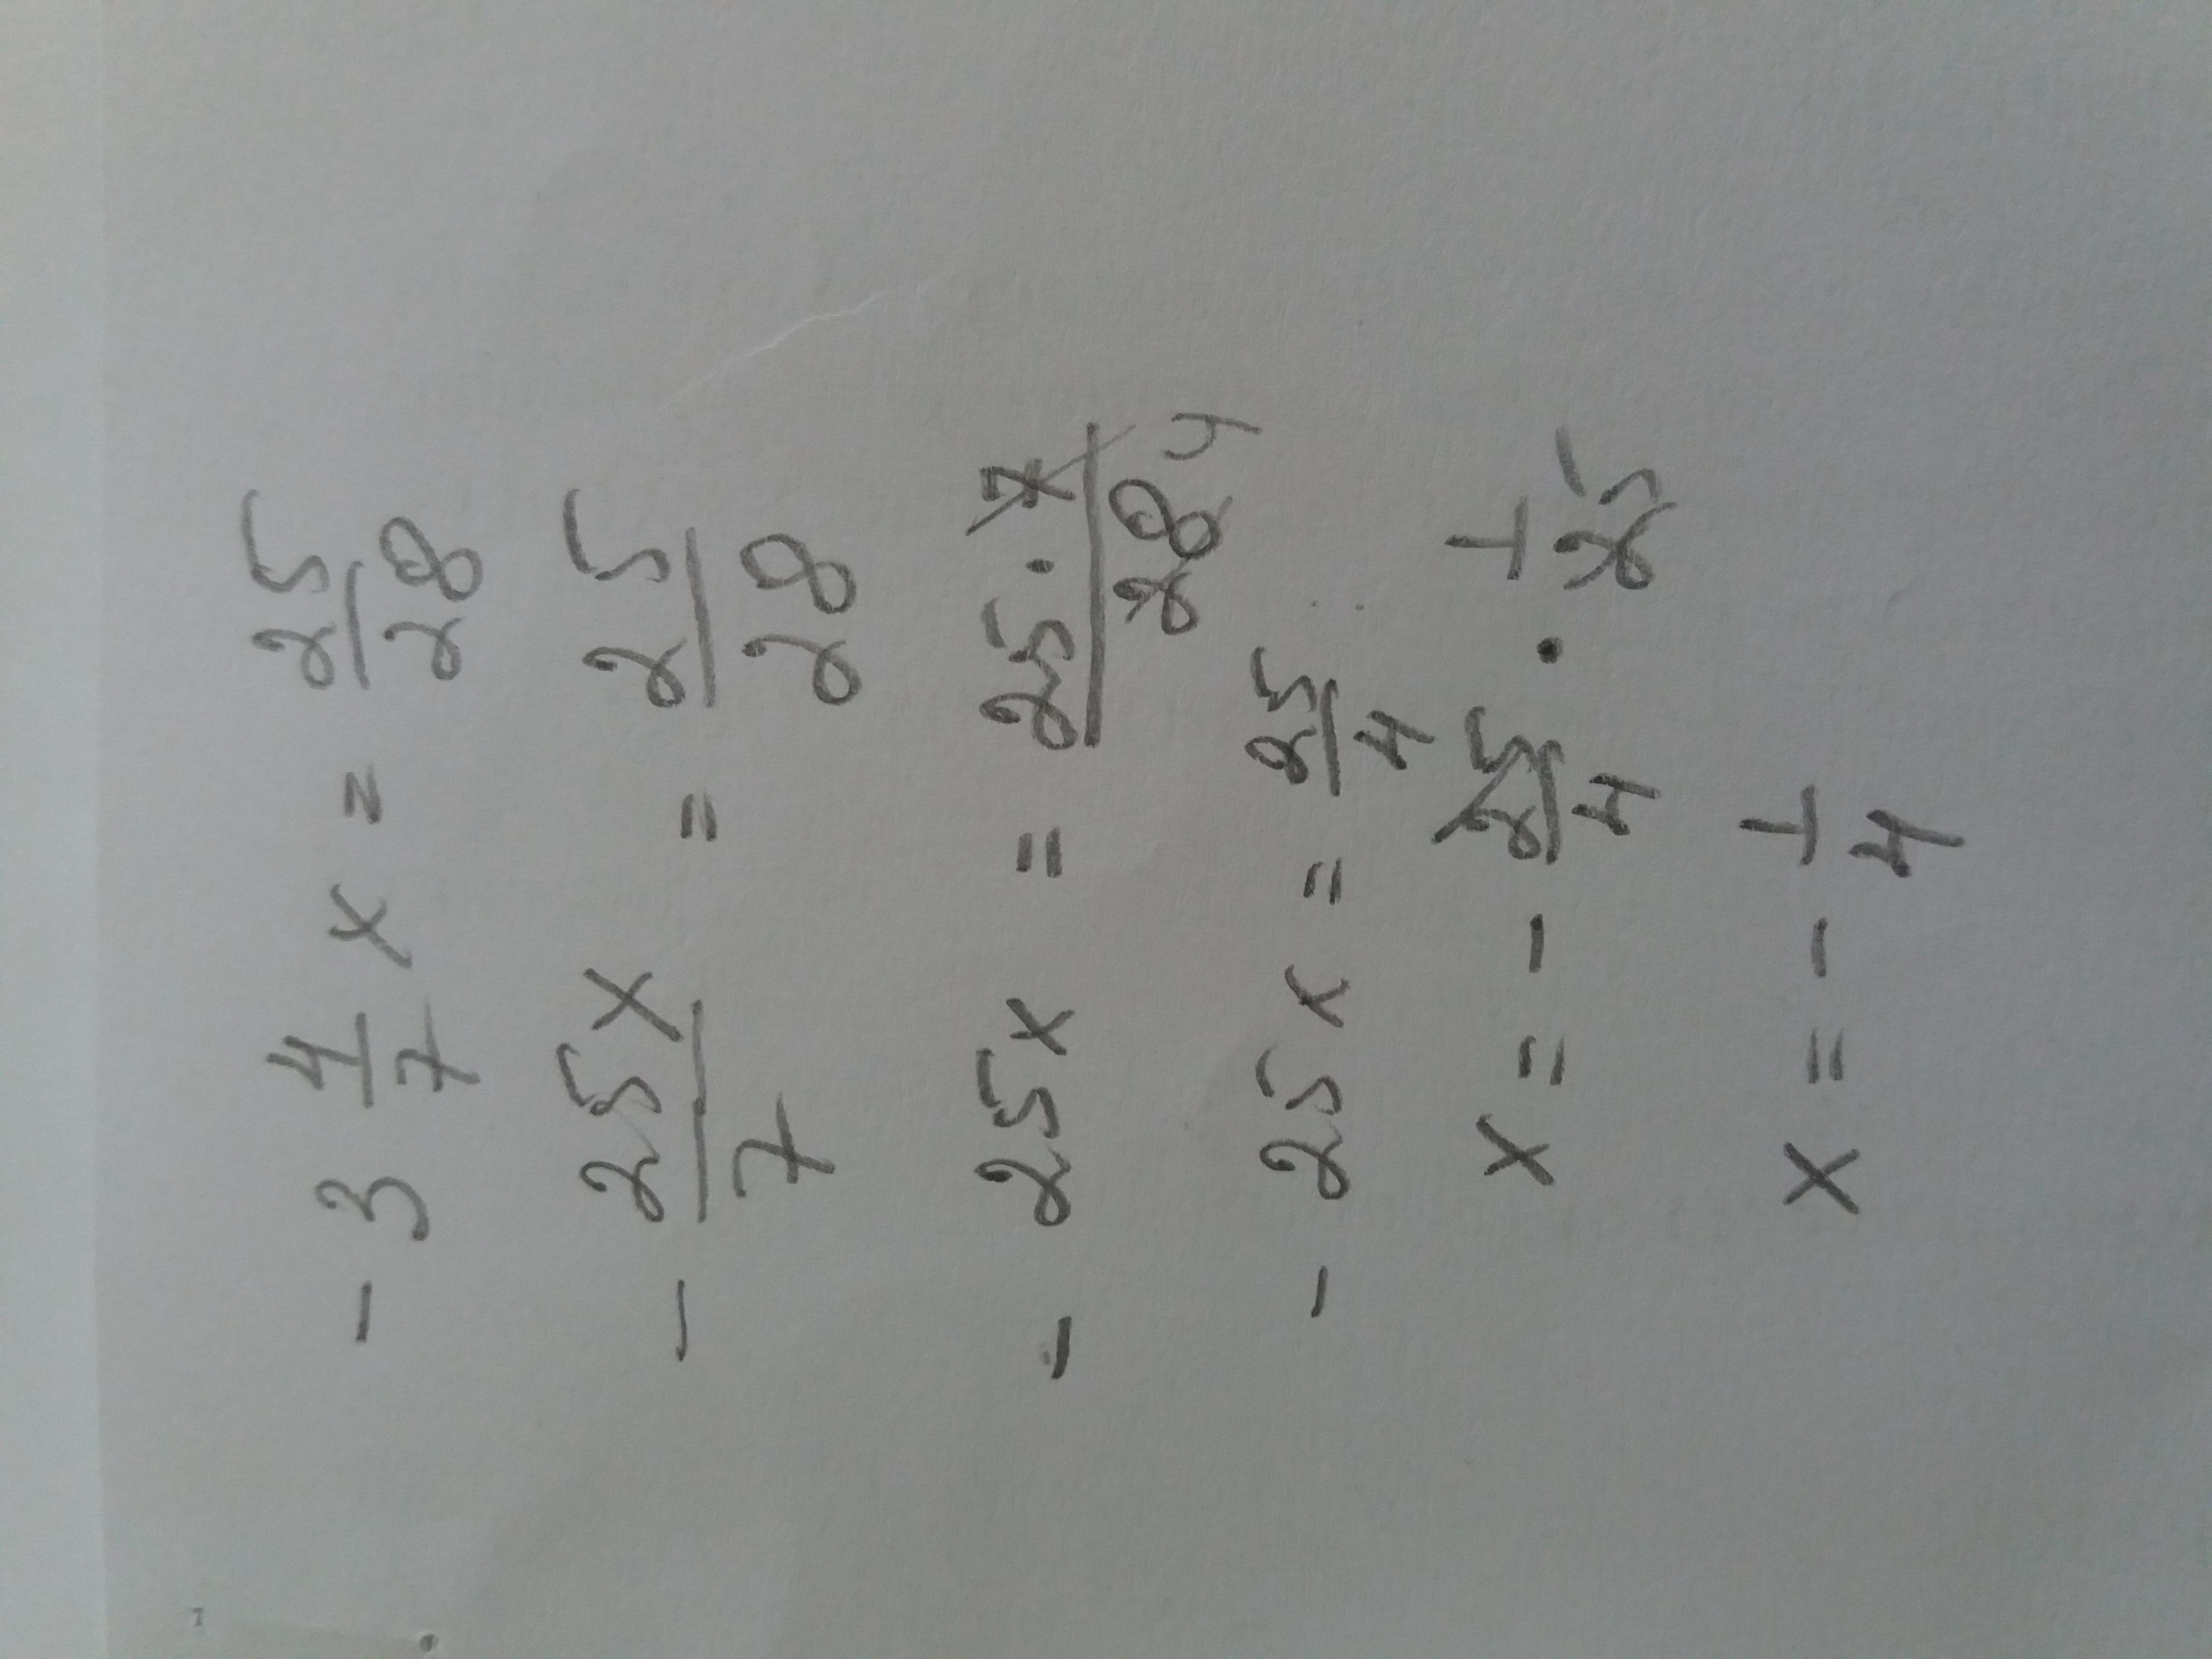 - 3 4/7 x = 25/28
- 25x/7 = 25/28
- 25x = 25 · 7/28 4
- 25x = 25/4
x = - 25/4 · 1/25
x = - 1/4